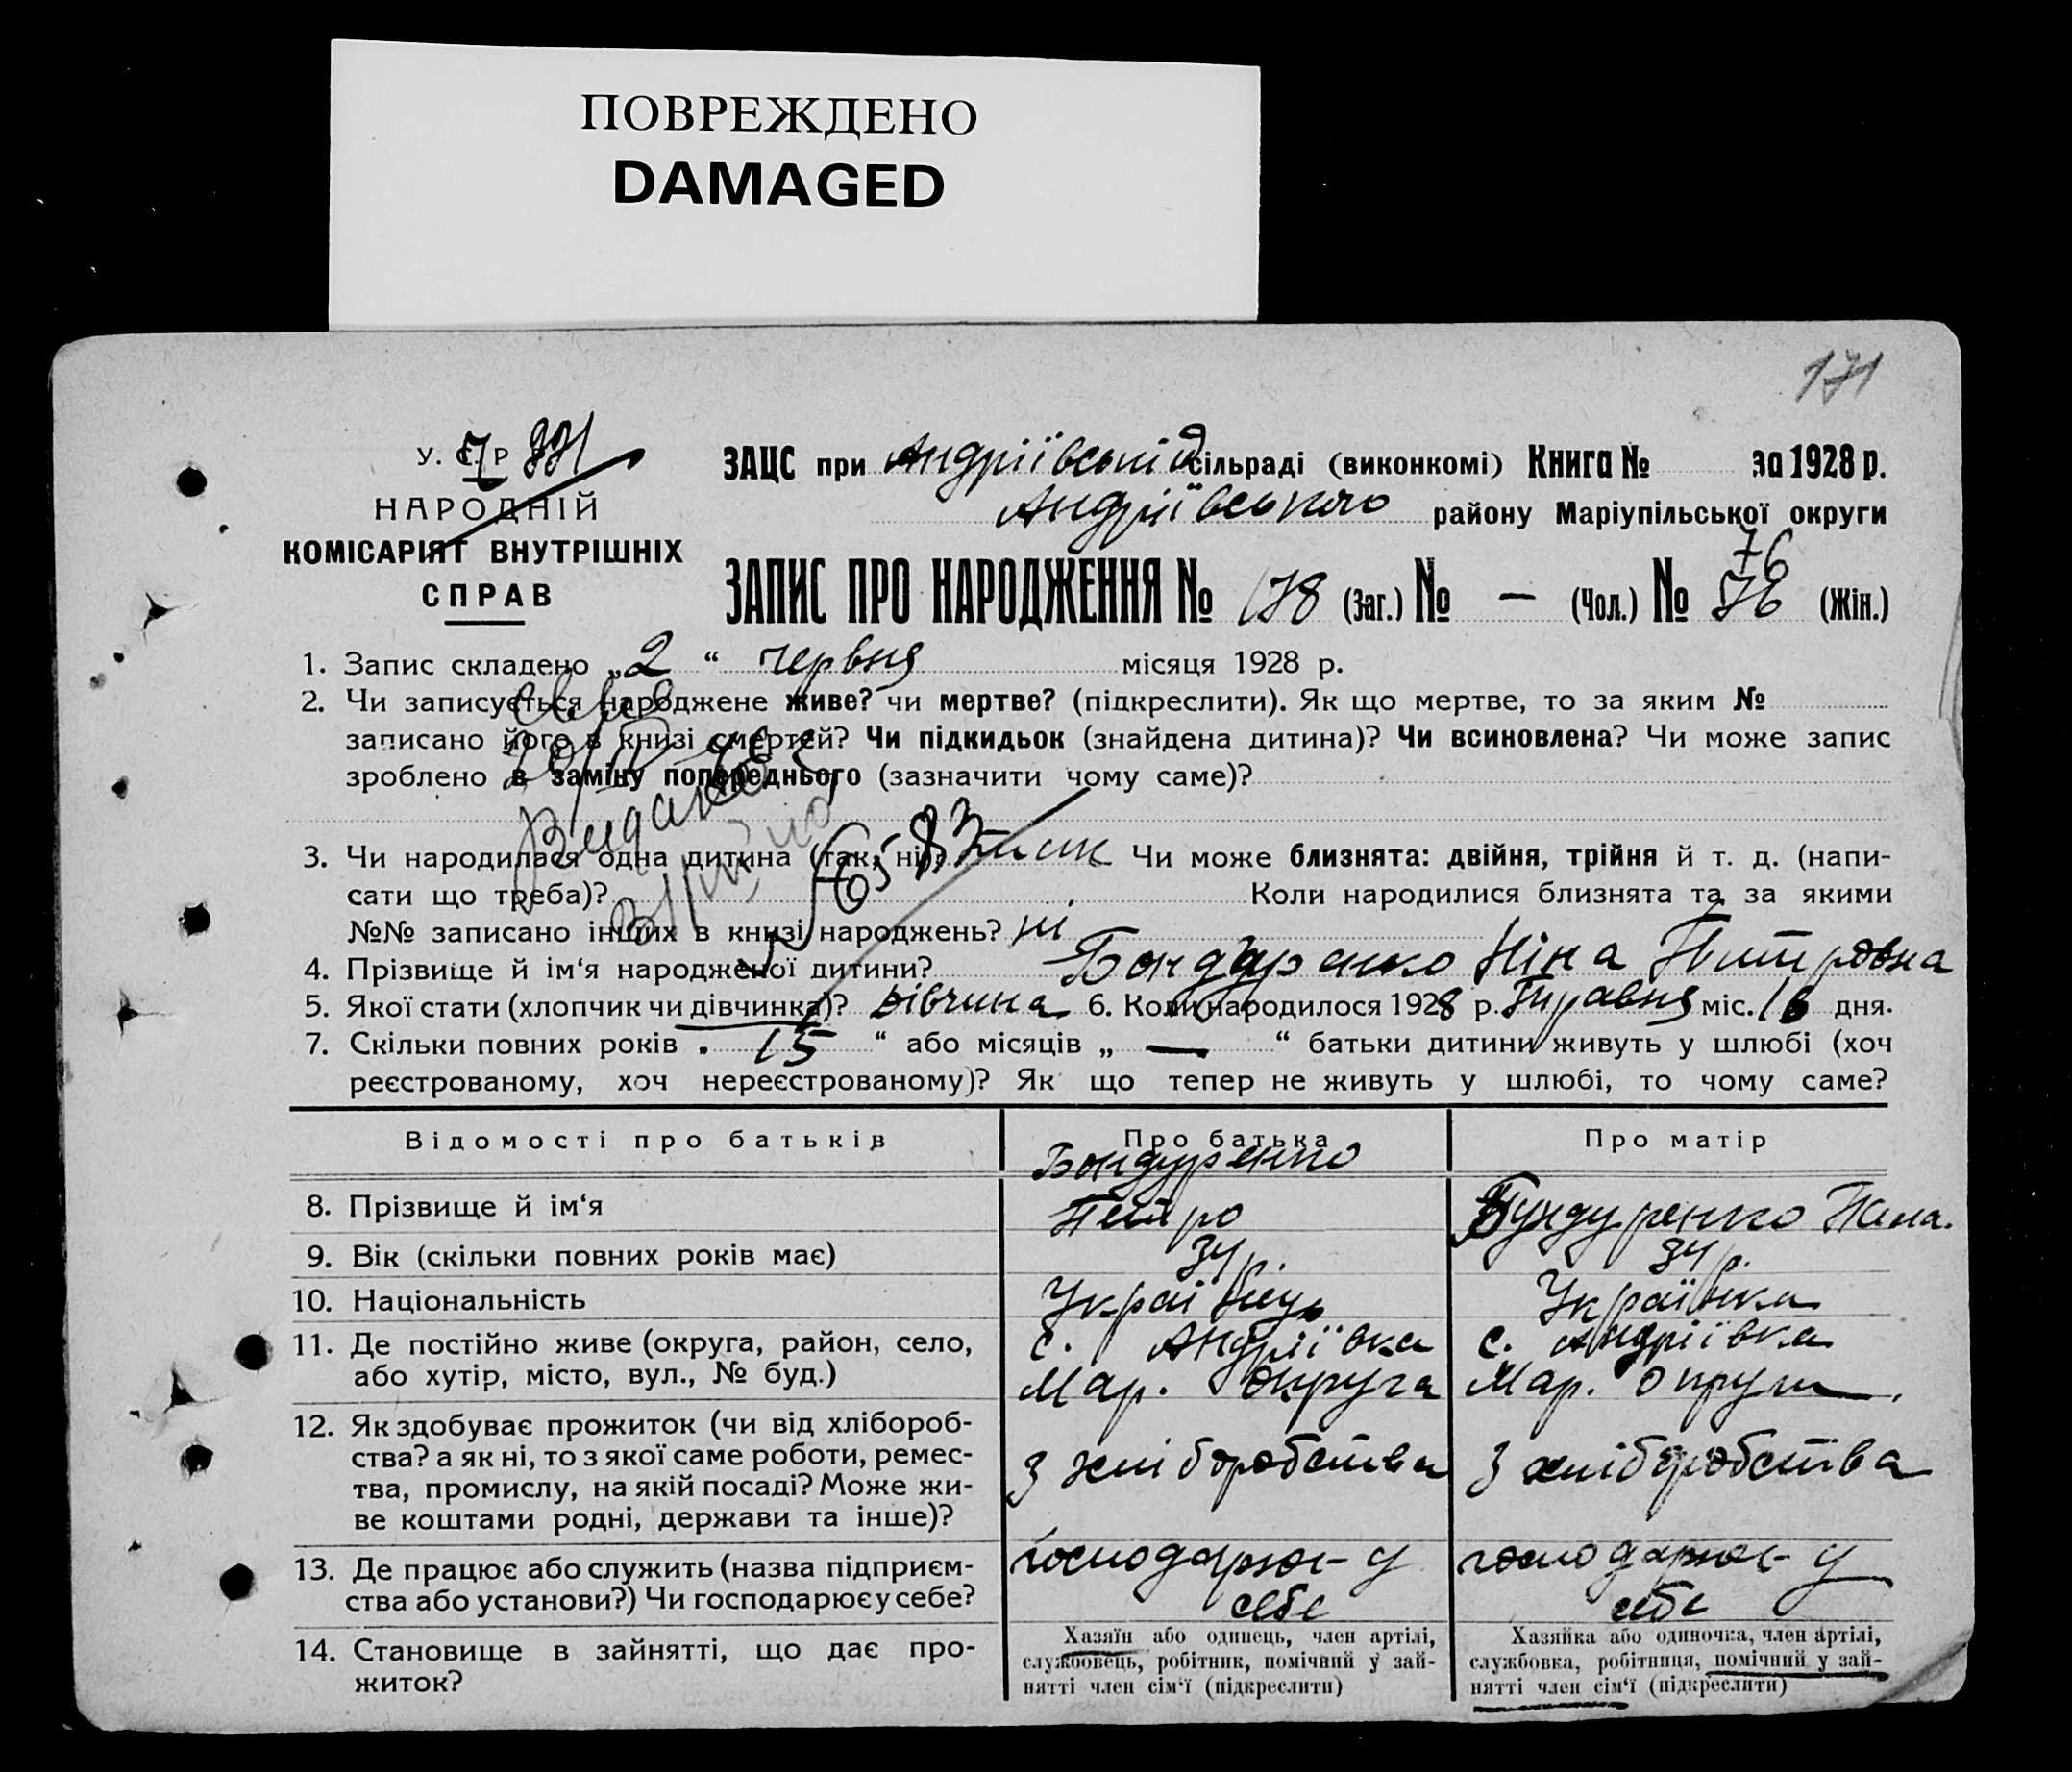 ПОВРЕЖДЕНО
DAMAGED
171
У. С. Р
НАРОДНІЙ
КОМІСАРІЯТ ВНУТРІШНІХ
СПРАВ
ЗАЦС при Андріївській сільраді (виконкомі) Книга № за 1928 р.
Андріївського району Маріупільської округи
ЗАПИС ПРО НАРОДЖЕННЯ № 178 (Заг.) № — (Чол.) № 76 (Жін.)
76
1. Запис складено „2“ червня місяця 1928 р.
2. Чи записується народжене живе? чи мертве? (підкреслити). Як що мертве, то за яким №
записано його в книзі смертей? Чи підкидьок (знайдена дитина)? Чи всиновлена? Чи може запис
зроблено в заміну попереднього (зазначити чому саме)?
3. Чи народилася одна дитина (так, ні)? так Чи може близнята: двійня, трійня й т. д. (напи-
сати що треба)? Коли народилися близнята та за якими
№№ записано інших в книзі народжень? ні
4. Прізвище й ім‘я народженої дитини? Бондаренко Ніна Петровна
5. Якої стати (хлопчик чи дівчинка)? дівчина 6. Коли народилося 1928 р. травня міс. 16 дня.
7. Скільки повних років „ 15 “ або місяців „ — “ батьки дитини живуть у шлюбі (хоч
реєстрованому, хоч нереєстрованому)? Як що тепер не живуть у шлюбі, то чому саме?
Відомості про батьків Про батька Про матір
Бондуренко
8. Прізвище й ім‘я Петро Бундуренко
9. Вік (скільки повних років має) 34 р. 34 р.
10. Національність Українець Українка
11. Де постійно живе (округа, район, село, с. Андріївка с. Андріївка
або хутір, місто, вул., № буд.) Мар. округа Мар. округи
12. Як здобуває прожиток (чи від хлібороб-
ства? а як ні, то з якої саме роботи, ремес- З хліборобства З хліборобства
тва, промислу, на якій посаді? Може жи-
ве коштами родні, держави та інше)?
13. Де працює або служить (назва підприєм- господарює у господарює у
ства або установи?) Чи господарює у себе? себе себе
14. Становище в зайнятті, що дає про-
житок?
Хазяїн або одинець, член артілі,
службовець, робітник, помічний у зай-
нятті член сім‘ї (підкреслити)
Хазяйка або одиночка, член артілі,
службовка, робітниця, помічний у зай-
нятті член сім‘ї (підкреслити)